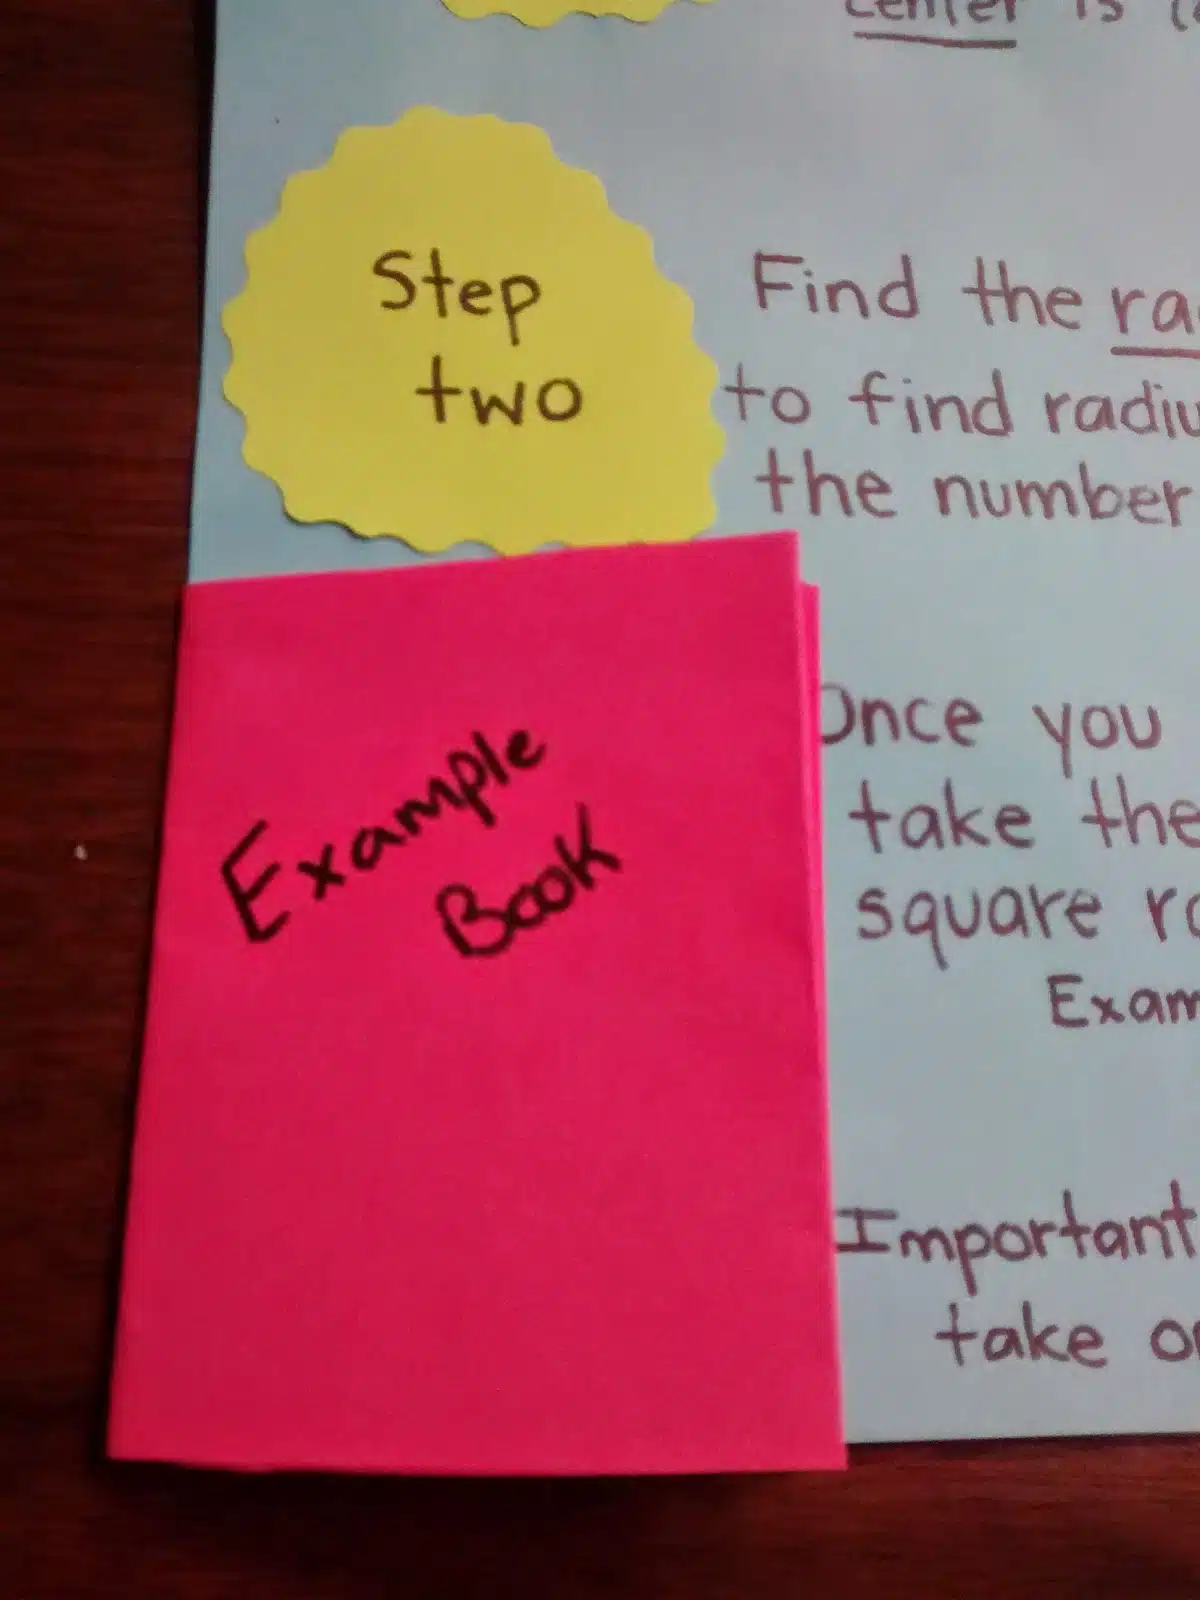 center is
Step
two
Find the
to find
the number
Example
Book
Once you
take the
square
Important
take